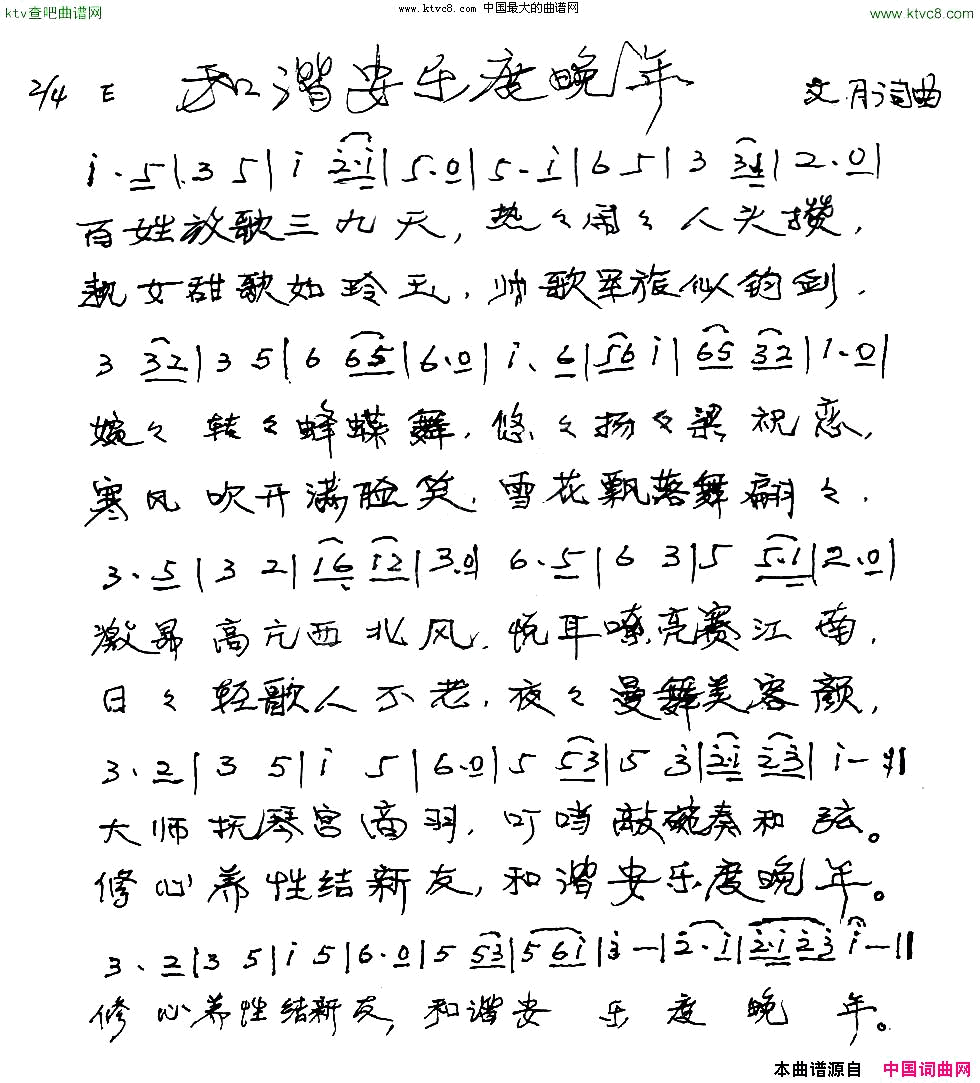 ktv查吧曲谱网 www.ktvc8.com 中国最大的曲谱网 www.ktvc8.com
2/4 E 和谐安乐度晚年 文月词曲
i·5|3 5|i 2·i|5·0|5·i|6 5|3 31|2·0|
百姓放歌三九天,热々闹々人头攒,
女甜歌如玲玉,帅歌军旅似钧剑.
3 32|3 5|6 65|6·0|i·6|56 i|65 32|1·0|
婉々转々蜂蝶舞,悠々扬々梁祝恋,
寒风吹开满脸笑,雪花飘落舞翩々.
3·5|3 2|16 12|3·0|6·5|6 3|5 5·1|2·0|
激昂高亢西北风,悦耳嘹亮赛江南,
日々轻歌人不老,夜々曼舞美容颜,
3·2|3 5|i 5|6·0|5 53|5 3|2·i 23|i-:||
大师抚琴宫商羽,叮当敲碗奏和弦。
修心养性结新友,和谐安乐度晚年。
3·2|3 5|i 5|6·0|5 53|5 6i|3-|2·i|2·i 23 i-||
修心养性结新友,和谐安乐度晚年。
本曲谱源自 中国词曲网